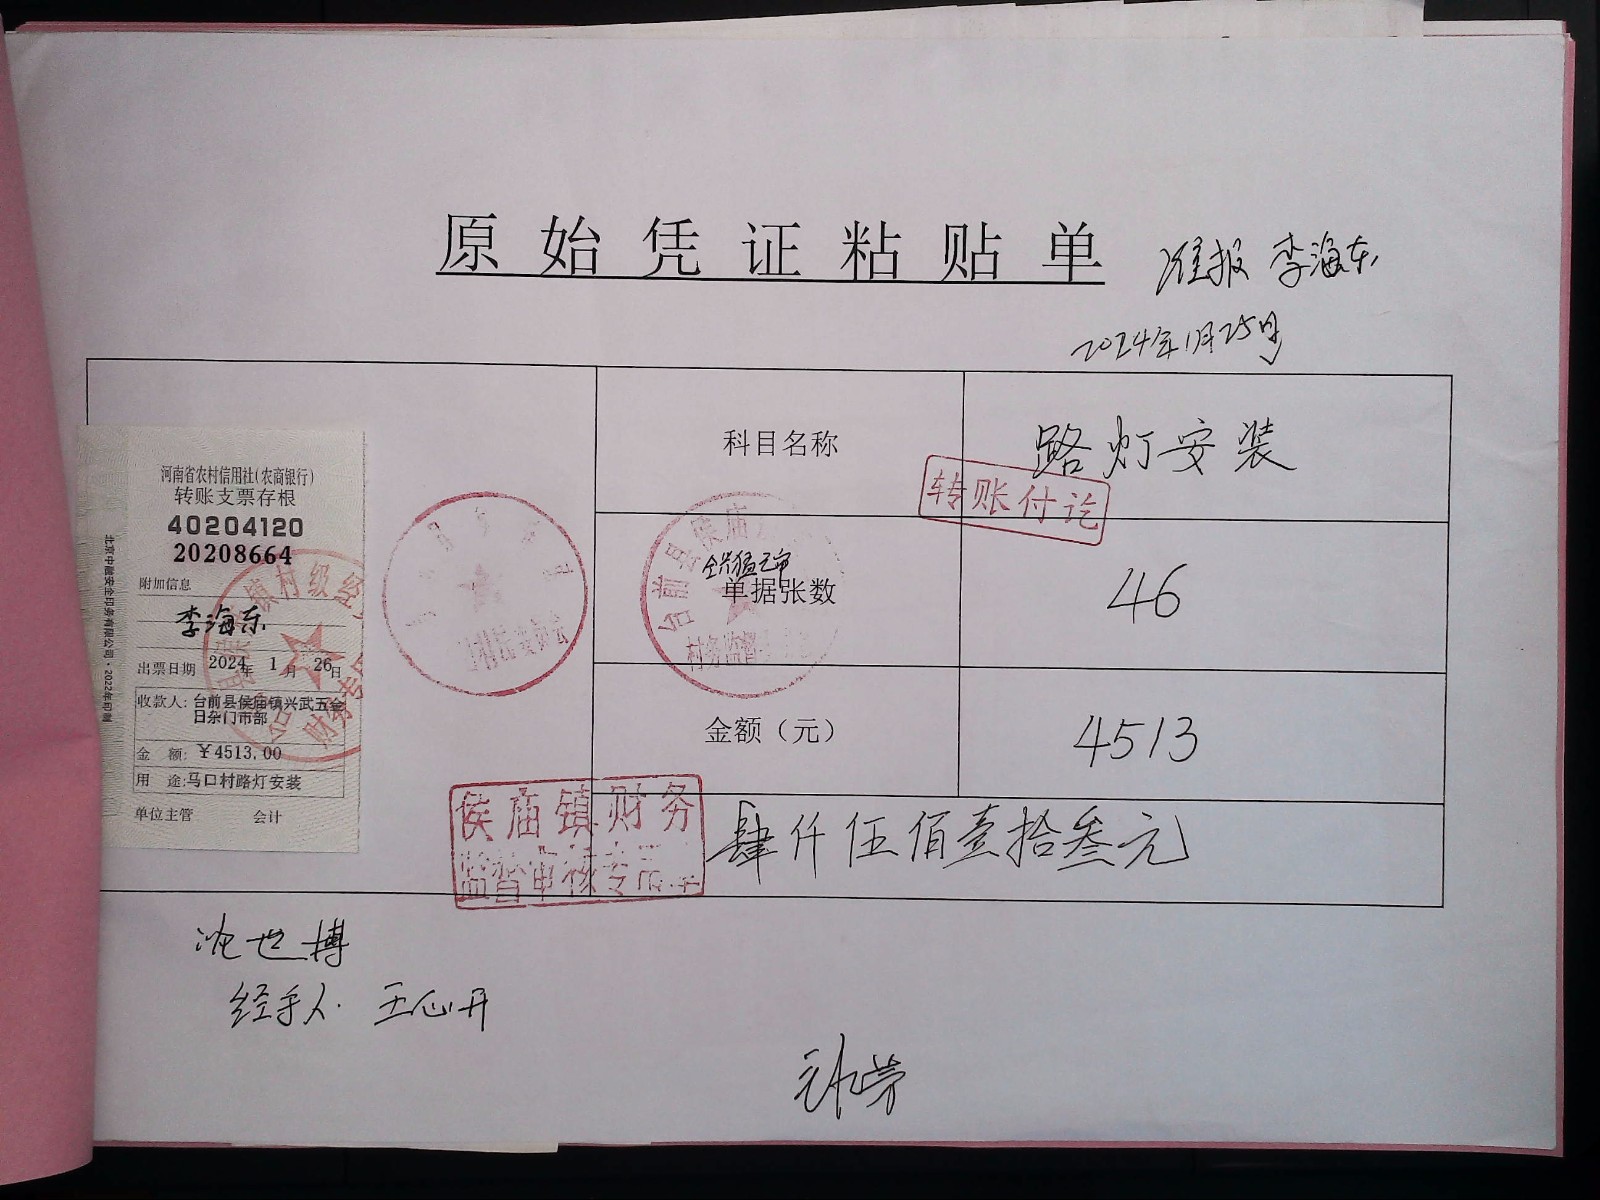 原始凭证粘贴单
准报 李海东
2024年1月25日
科目名称
路灯安装
转账付讫
单据张数
46
金额（元）
4513
肆仟伍佰壹拾叁元
河南省农村信用社(农商银行)
转账支票存根
40204120
20208664
附加信息
李海东
出票日期 2024年 1月 26日
收款人: 台前县侯庙镇兴武五金
日杂门市部
金 额: ￥4513.00
用 途: 马口村路灯安装
单位主管 会计
镇村级经
财务专
台前县侯庙
村务监督
侯庙镇财务
监督审核专用章
沈世博
经手人 王心丹